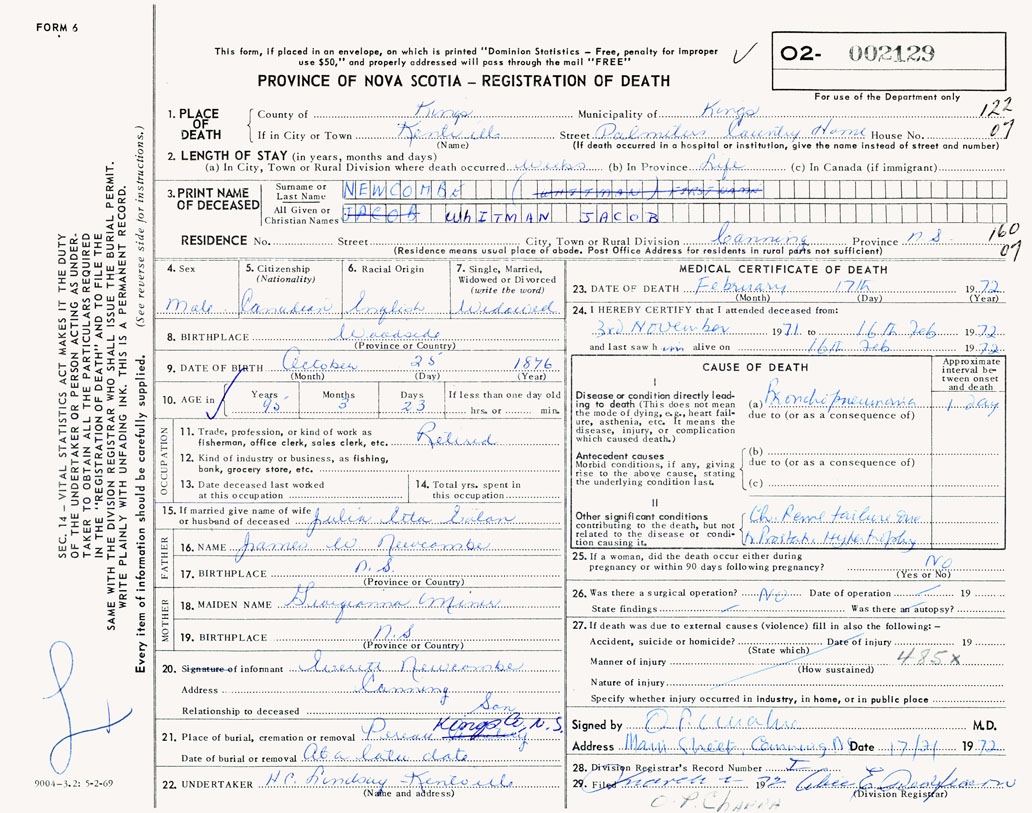 FORM 6
This form, if placed in an envelope, on which is printed "Dominion Statistics – Free, penalty for improper
use $50," and properly addressed will pass through the mail "FREE"
PROVINCE OF NOVA SCOTIA – REGISTRATION OF DEATH
02- 002129
For use of the Department only
122
07
1. PLACE OF DEATH
County of Kings Municipality of Kings
If in City or Town Kentville Street Palmeter's Country Home House No.
(Name) (If death occurred in a hospital or institution, give the name instead of street and number)
2. LENGTH OF STAY (in years, months and days)
(a) In City, Town or Rural Division where death occurred weeks (b) In Province Life (c) In Canada (if immigrant)
3. PRINT NAME OF DECEASED
Surname or Last Name NEWCOMBE (WHITMAN) FIRST NAME
All Given or Christian Names JACOB WHITMAN JACOB
RESIDENCE No. Street City, Town or Rural Division Canning Province N.S.
(Residence means usual place of abode. Post Office Address for residents in rural parts not sufficient)
160
07
4. Sex Male
5. Citizenship (Nationality) Canadian
6. Racial Origin English
7. Single, Married, Widowed or Divorced (write the word) Widowed
8. BIRTHPLACE Woodside
(Province or Country)
9. DATE OF BIRTH October 25 1876
(Month) (Day) (Year)
10. AGE in Years 95 Months 3 Days 23 If less than one day old hrs. or min.
OCCUPATION
11. Trade, profession, or kind of work as fisherman, office clerk, sales clerk, etc. Retired
12. Kind of industry or business, as fishing, bank, grocery store, etc.
13. Date deceased last worked at this occupation
14. Total yrs. spent in this occupation
15. If married give name of wife or husband of deceased Julia Etta
FATHER
16. NAME James W Newcombe
17. BIRTHPLACE N.S.
(Province or Country)
MOTHER
18. MAIDEN NAME Georgianna Miner
19. BIRTHPLACE N.S
(Province or Country)
20. Signature of informant Newcombe
Address Canning
Relationship to deceased Son
21. Place of burial, cremation or removal Pereau Kings Co, N.S.
Date of burial or removal At a later date
22. UNDERTAKER H.C. Lindsay Kentville
(Name and address)
MEDICAL CERTIFICATE OF DEATH
23. DATE OF DEATH February 17th 1972
(Month) (Day) (Year)
24. I HEREBY CERTIFY that I attended deceased from:
3rd November 1971 to 16th Feb 1972
and last saw him alive on 16th Feb 1972
CAUSE OF DEATH
Approximate interval between onset and death
I
Disease or condition directly leading to death (This does not mean the mode of dying, e.g., heart failure, asthenia, etc. It means the disease, injury, or complication which caused death.)
(a) Bronchopneumonia 1 day
due to (or as a consequence of)
Antecedent causes
Morbid conditions, if any, giving rise to the above cause, stating the underlying condition last.
(b)
due to (or as a consequence of)
(c)
II
Other significant conditions contributing to the death, but not related to the disease or condition causing it.
Ch. Renal failure due
to Prostatic Hypertrophy
25. If a woman, did the death occur either during
pregnancy or within 90 days following pregnancy? NO
(Yes or No)
26. Was there a surgical operation? NO Date of operation 19
State findings Was there an autopsy?
27. If death was due to external causes (violence) fill in also the following: –
Accident, suicide or homicide? Date of injury 19
(State which)
Manner of injury 485x
(How sustained)
Nature of injury
Specify whether injury occurred in industry, in home, or in public place
Signed by M.D.
Address Main Street Canning NS Date 17/2/ 1972
28. Division Registrar's Record Number
29. Filed March 1972
(Division Registrar)
SEC. 14 – VITAL STATISTICS ACT MAKES IT THE DUTY
OF THE UNDERTAKER OR PERSON ACTING AS UNDER-
TAKER TO OBTAIN ALL THE PARTICULARS REQUIRED
IN THE "REGISTRATION OF DEATH" AND TO FILE THE
SAME WITH THE DIVISION REGISTRAR WHO SHALL ISSUE THE BURIAL PERMIT.
WRITE PLAINLY WITH UNFADING INK. THIS IS A PERMANENT RECORD.
Every item of information should be carefully supplied. (See reverse side for instructions.)
9004-3.2: 5-2-69